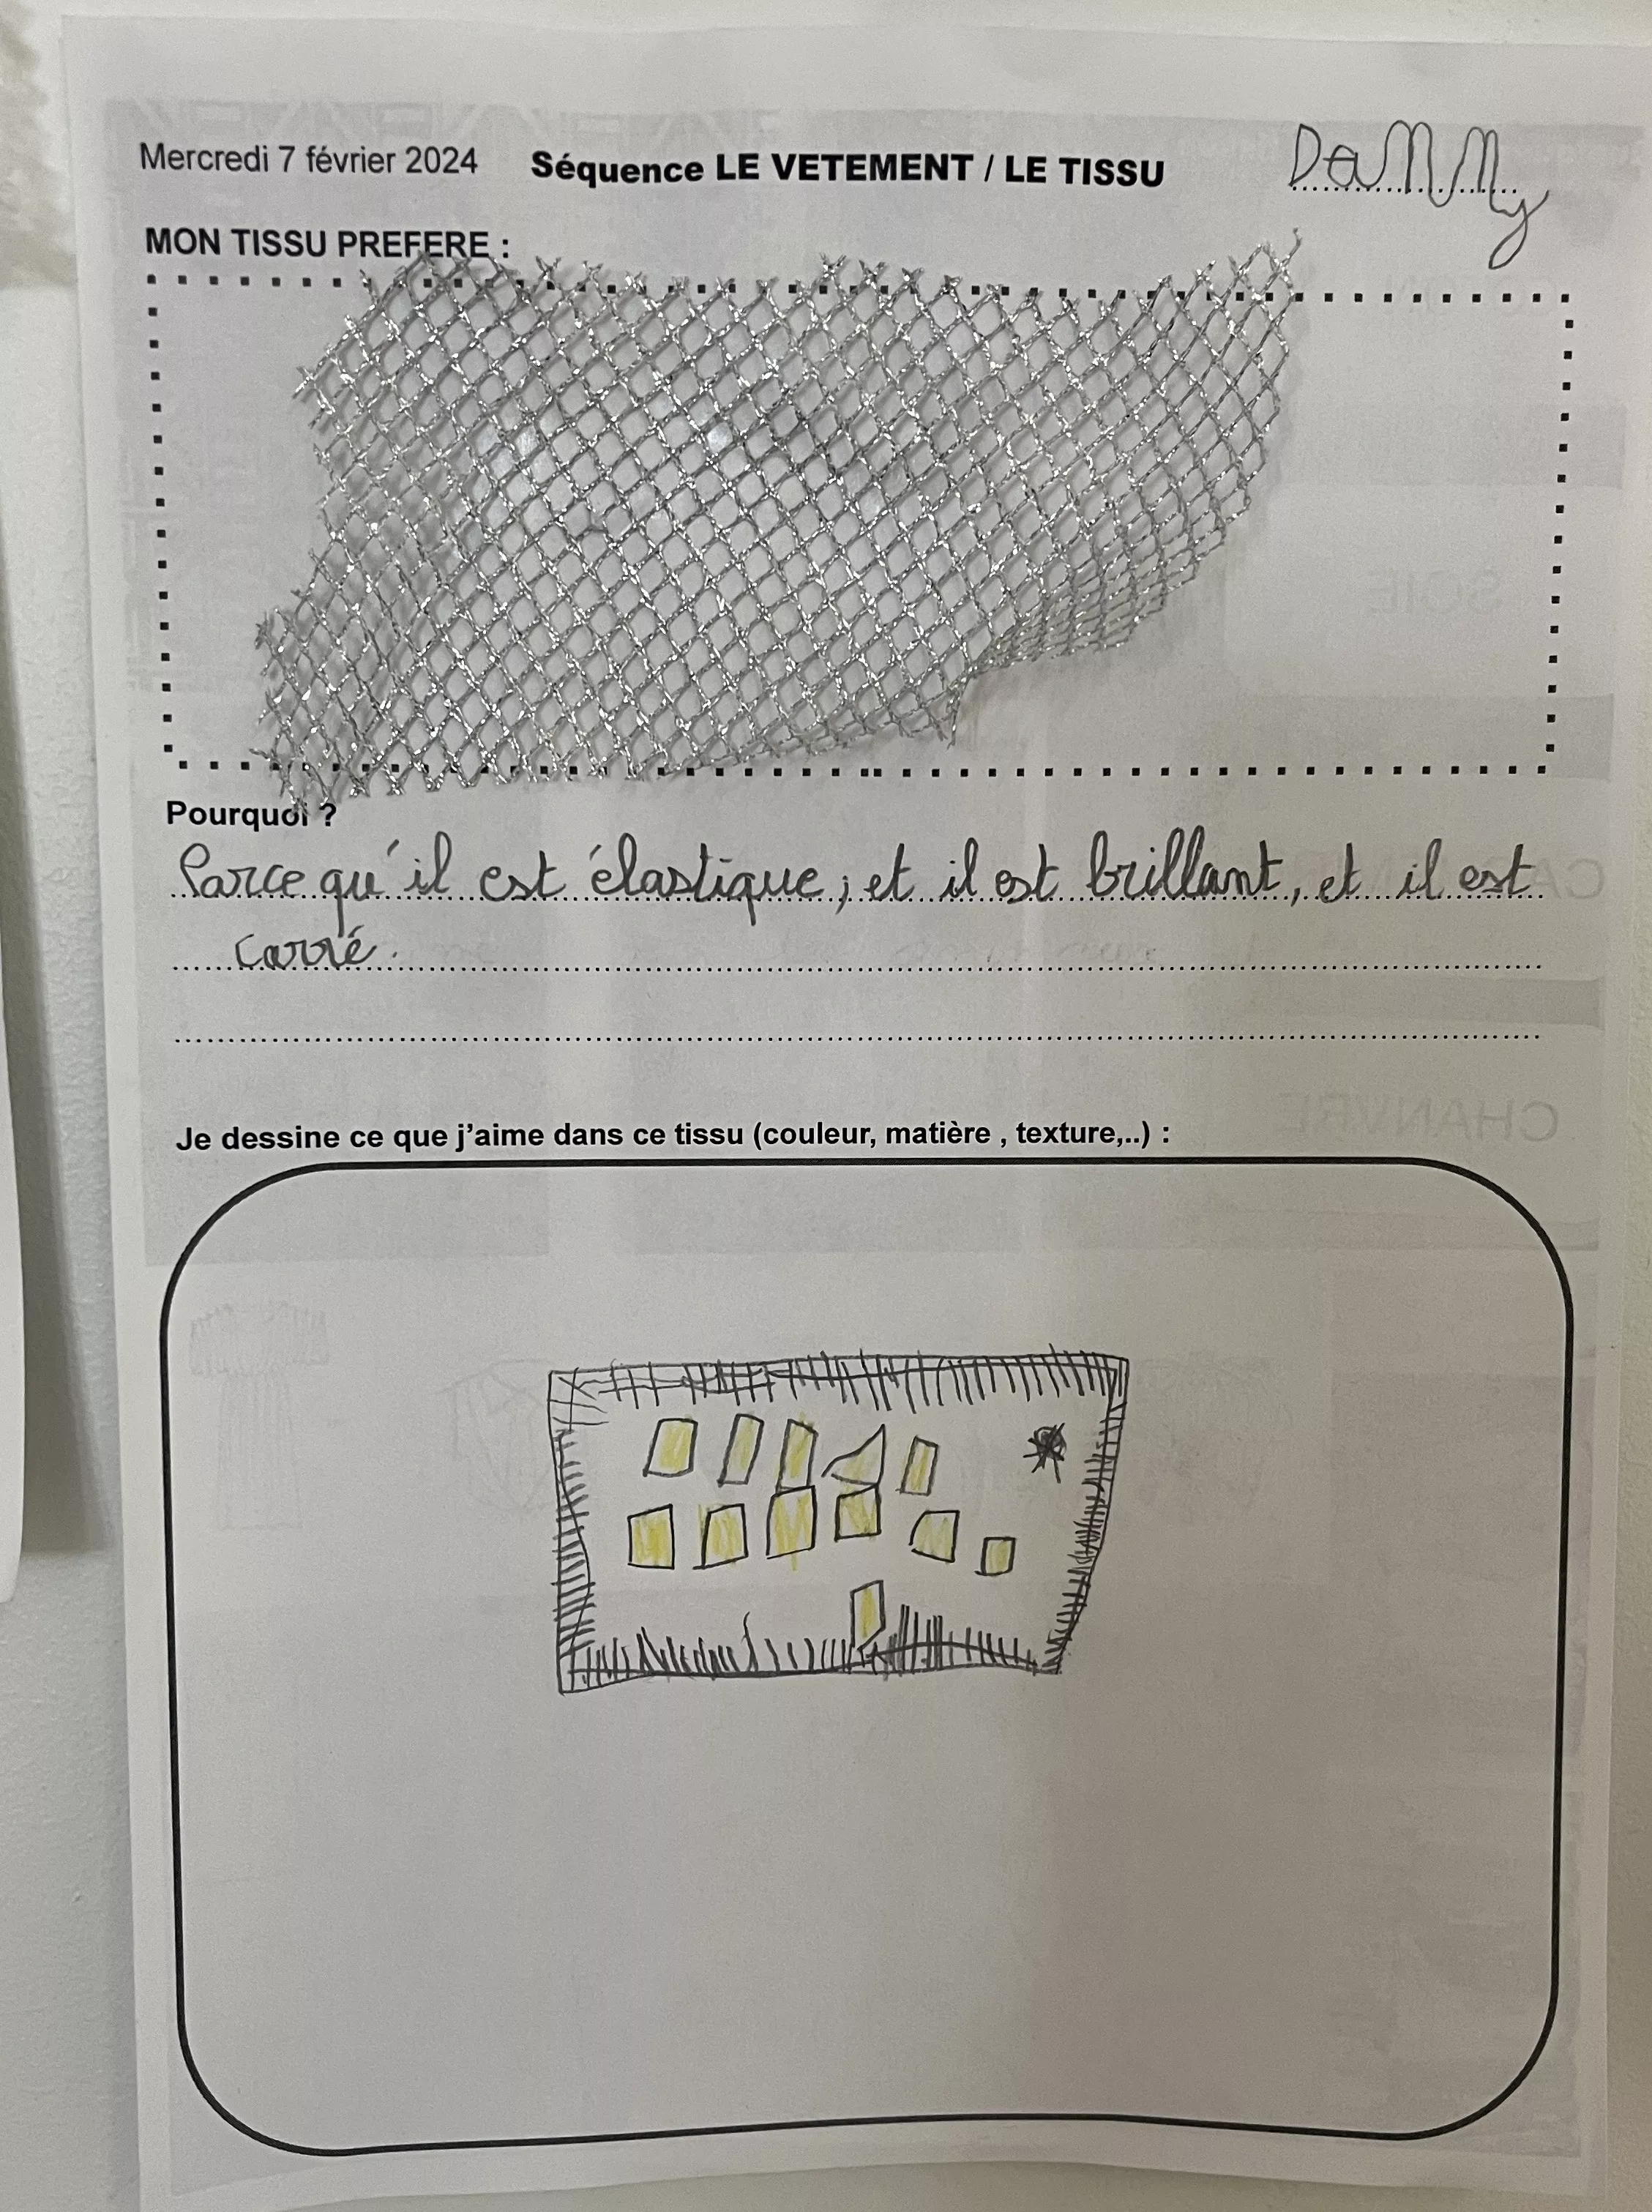 Mercredi 7 février 2024 Séquence LE VETEMENT / LE TISSU Dannny
MON TISSU PREFERE :
Pourquoi ?
Parce qu'il est élastique, et il est brillant, et il est
carré.
Je dessine ce que j'aime dans ce tissu (couleur, matière , texture,..) :
CHANVRE